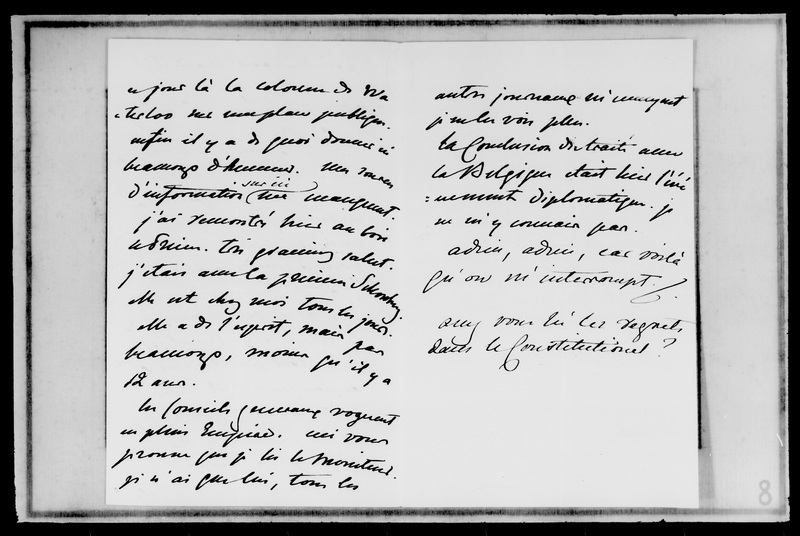 ce jour là la colonne de Wa
terloo sur une place publique.
enfin il y a de quoi donner ici
beaucoup d'humeur. mes sources
d'information sur ici me manquent.
j'ai rencontré hier au bois
très gracieux salut.
j'étais avec la princesse Schonburg
elle est chez moi tous les jours.
elle a de l'esprit, mais pas
beaucoup, moins qu'il y a
12 ans.
les Conseils généraux voguent
en plein Empire. ceci vous
prouve que je lis le Moniteur.
je n'ai que lui, tous les
autres journaux m'ennuyent
je ne les vois plus.
La Conclusion du traité avec
la Belgique était hier l'évé
nement diplomatique. je
ne m'y connais pas.
adieu, adieu, car voilà
qu'on m'interrompt.
avez vous lu les regrets
dans le Constitutionel ?
8